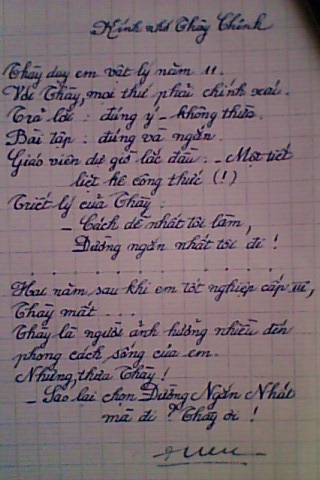 Kính nhớ Thầy Chính
Thầy dạy em vật lý năm 11.
Với Thầy, mọi thứ phải chính xác.
Trả lời : đúng ý - không thừa.
Bài tập : đúng và ngắn.
Giáo viên dự giờ lắc đầu : - Một tiết
liệt kê công thức (!)
Triết lý của Thầy :
- Cách dễ nhất tôi làm,
Đường ngắn nhất tôi đi !
. . . . . . . . . . . . . . . .
Hai năm sau khi em tốt nghiệp cấp III,
Thầy mất ...
Thầy là người ảnh hưởng nhiều đến
phong cách sống của em.
Nhưng, thưa Thầy !
- Sao lại chọn Đường Ngắn Nhất
mà đi ? Thầy ơi !